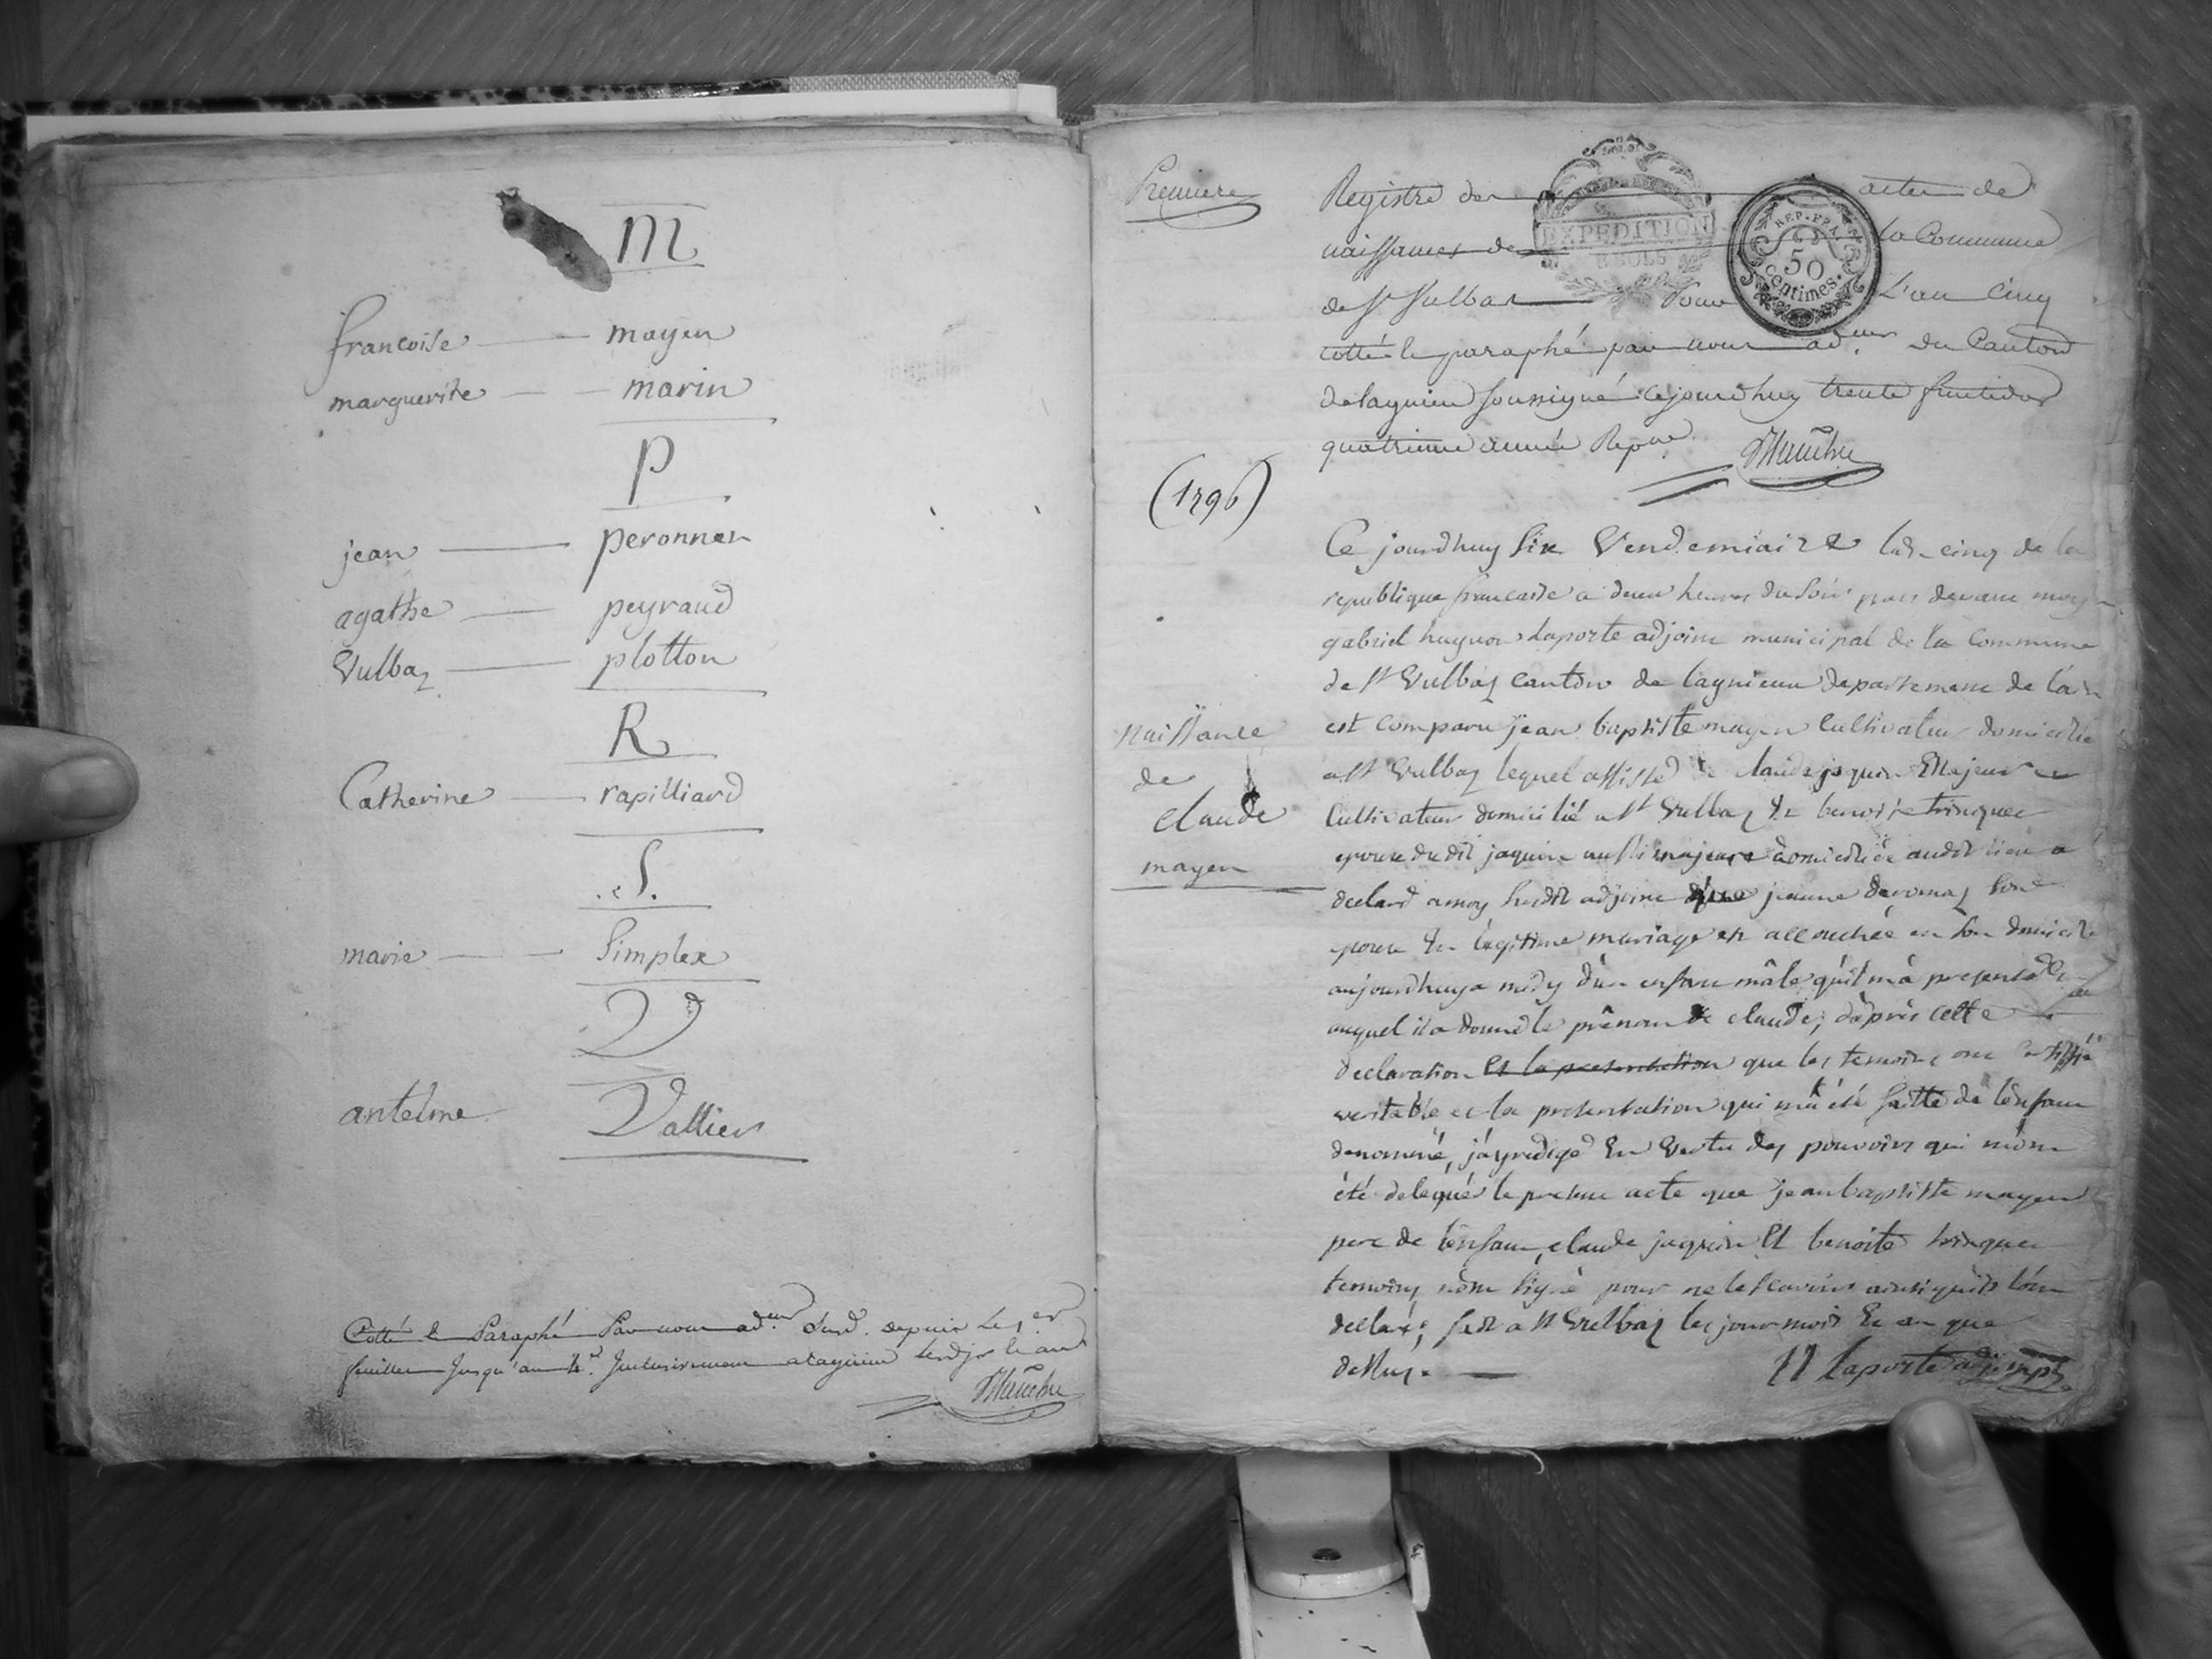 M
francoise — mayen
marguerite — marin
P
jean — peronnen
agathe — peyraud
Vulbaz — plotton
R
Catherine — rapilliard
S.
marie — Simplex
V
antelme Vallier
Cotté et Paraphé Par nous ad.eur Susd. depuis le 1er
feuillet Jusqu'au Inclusivement a Lagnieu
Premiere
Registre des actes de
naissances de la Commune
de St Vulbas Pour L'an Cinq
cotté et paraphé par nous ad.eur du Canton
de lagnieu soussigné cejourdhuy trente fructidor
quatrieme année Repue.
EXPEDITION
REP. FRA.
50
centimes.
(1796)
Naissance
de
claude
mayen
Ce jourdhuy six Vendemiaire cinq de la
republique francaise a deux heures du soir par devant moy
gabriel hugues laporte adjoint municipal de la Commune
de St Vulbaz canton de lagnieu departement de lain
est comparu jean baptiste mayen cultivateur domicilié
a St Vulbaz lequel assisté de claude jaquin Majeur
Cultivateur domicilié a St Vulbaz benoite trinquer
epouse dudit jaquin aussi majeure domiciliée audit lieu a
declaré a moy susdit adjoint que jeanne son
epouse en legitime mariage est accouchée en son domicile
aujourdhuy a midy d'un enfant mâle qu'il m'a presenté
auquel il a donné le prénom de claude; d'après cette
declaration et la presentation que les temoins ont certiffié
veritable et la presentation qui m'a été faitte de l'enfant
denomené, j'ay redigé En Vertu des pouvoirs qui m'ont
été delegués le present acte que jean baptiste mayen
pere de l'enfant, claude jaquin et benoite trinquer
temoins n'ont signé pour ne le scavoir ainsi qu'ils l'ont
declaré; fait a St Vulbaz les jour mois et an que
dessus. —
H Laporte adjoint